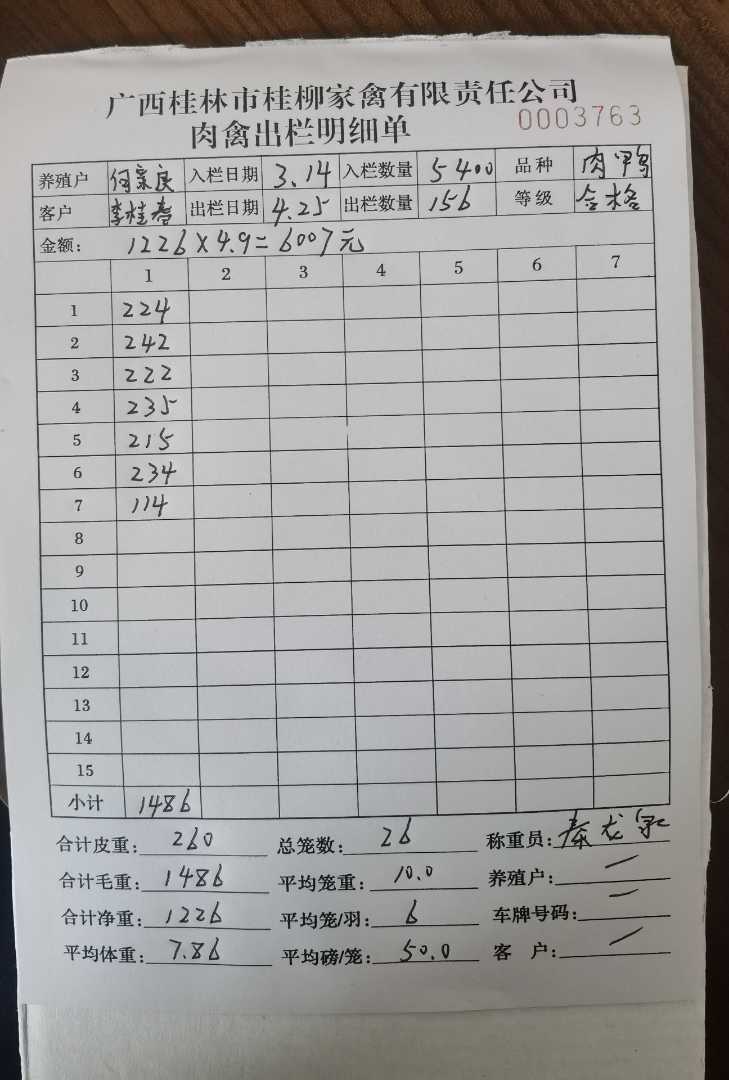 广西桂林市桂柳家禽有限责任公司
肉禽出栏明细单 0003763
养殖户 何家良 入栏日期 3.14 入栏数量 5400 品种 肉鸭
客户 李桂春 出栏日期 4.25 出栏数量 156 等级 合格
金额: 1226×4.9=6007元
1 2 3 4 5 6 7
1 224
2 242
3 222
4 235
5 215
6 234
7 114
8
9
10
11
12
13
14
15
小计 1486
合计皮重: 260 总笼数: 26 称重员: 秦龙
合计毛重: 1486 平均笼重: 10.0 养殖户: 一
合计净重: 1226 平均笼/羽: 6 车牌号码: 一
平均体重: 7.86 平均磅/笼: 50.0 客户: 一